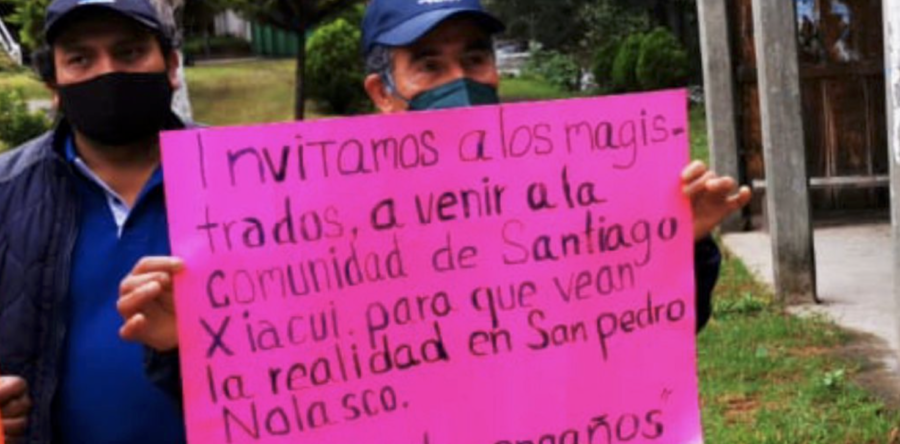 Invitamos a los magis-
trados, a venir a la
comunidad de Santiago
Xiacui. para que vean
la realidad en San pedro
Nolasco.
engaños"